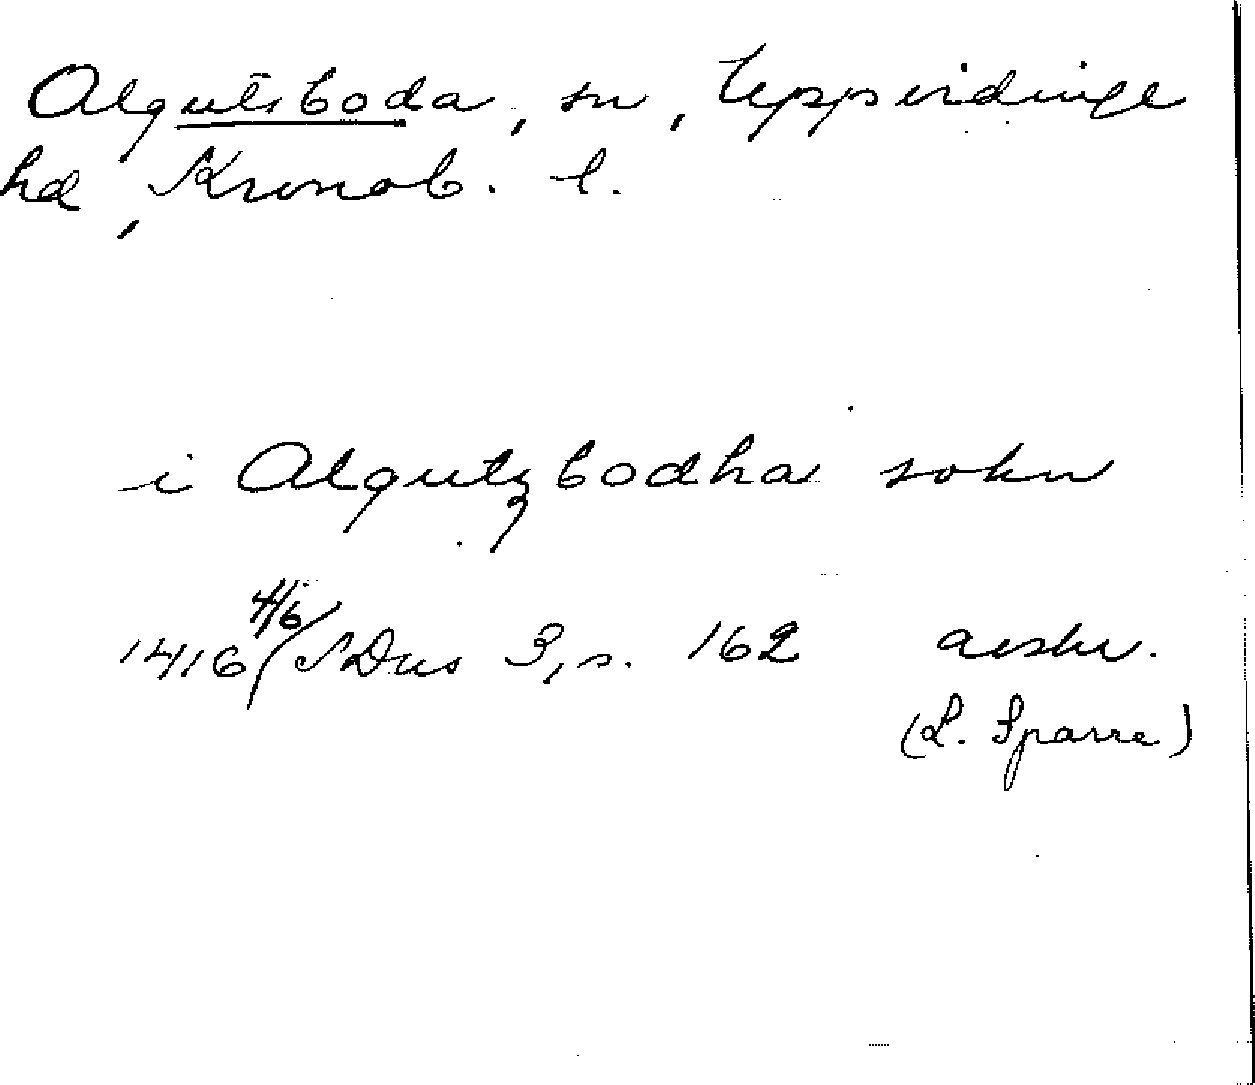 Algutsboda, sn, Uppvidinge
hd, Kronob. l.
i Algutzbodha sokn
1416 4/6 SDns 3, s. 162 avskr.
(L. Sparre)